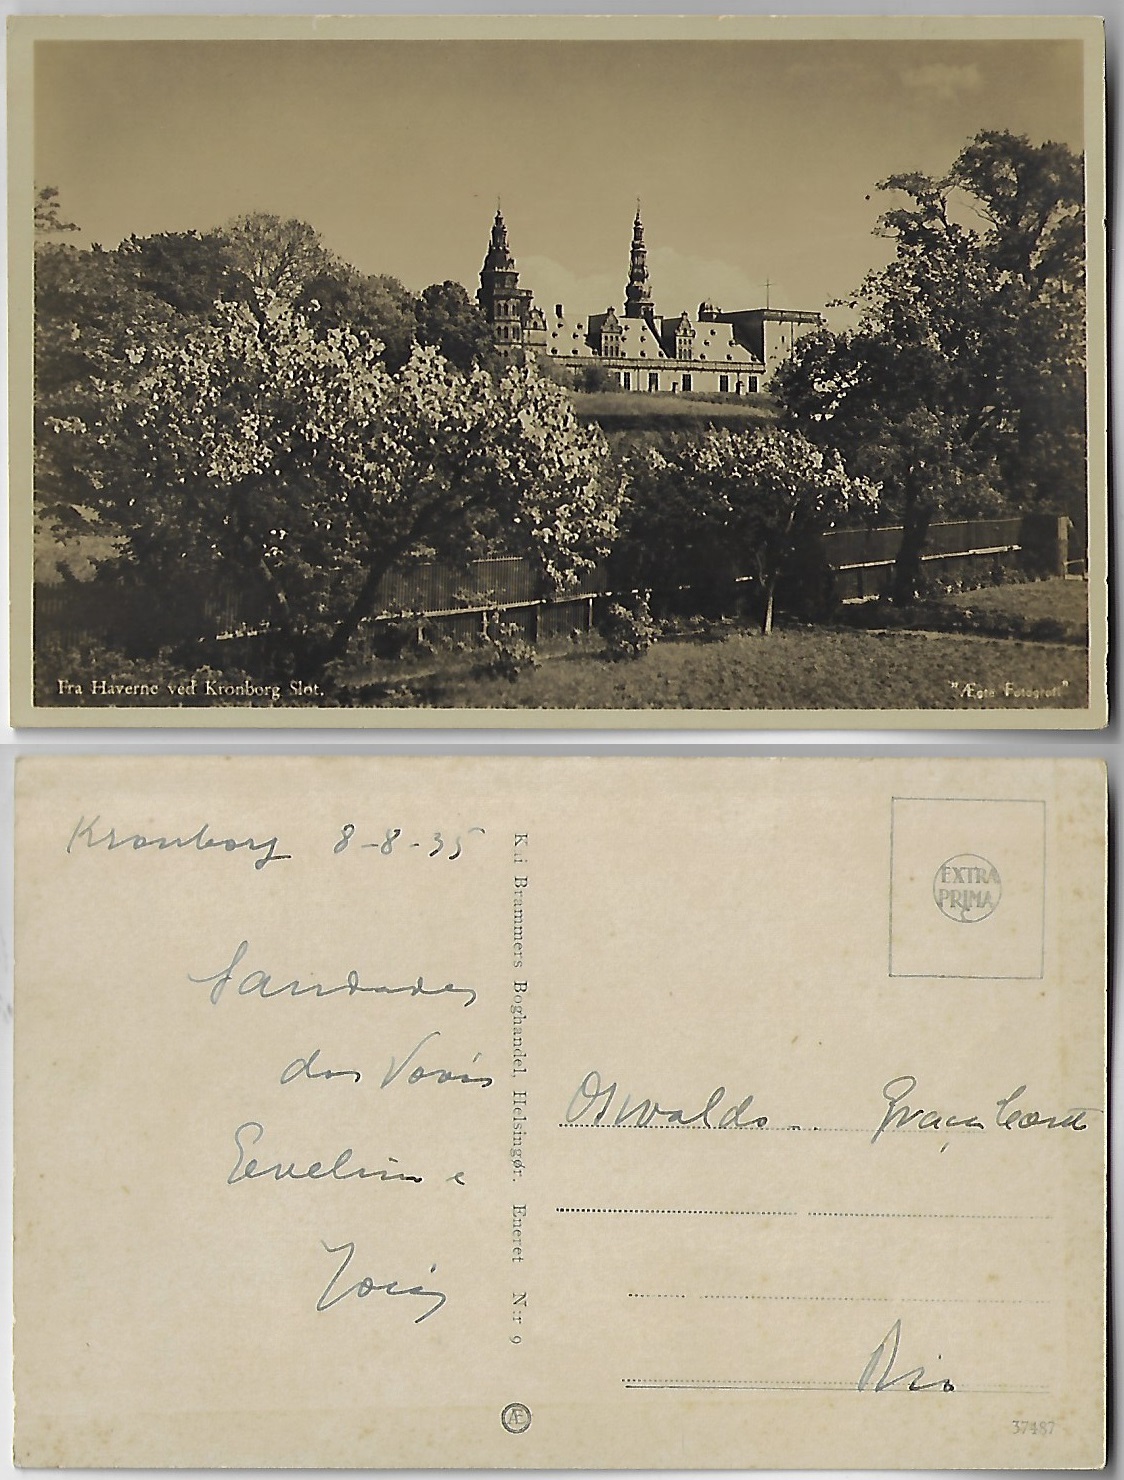 Fra Haverne ved Kronborg Slot.
"Ægte Fotografi"
Kronborg 8-8-35
Saudades
dos Vovós
Eevelina e
Kai Brammers Boghandel, Helsingør. Eneret N:r 9
EXTRA
PRIMA
Oswaldo
Rio
Æ
37487